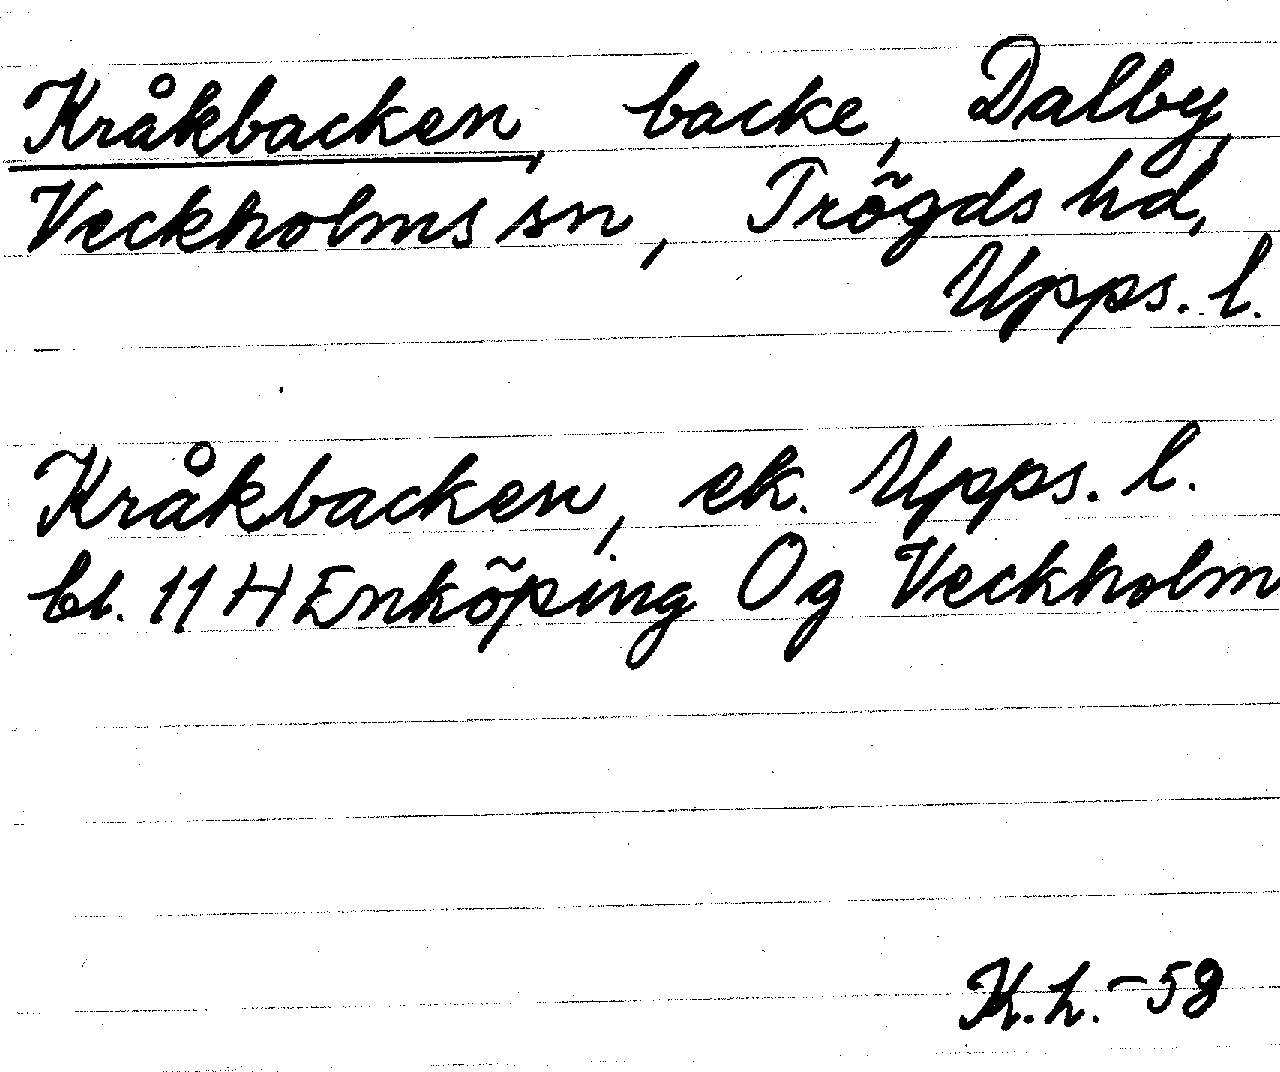 Kråkbacken, backe, Dalby,
Veckholms sn, Trögds hd,
Upps. l.
Kråkbacken, ek. Upps. l.
bl. 11 H Enköping Og Veckholm
K.L. -58